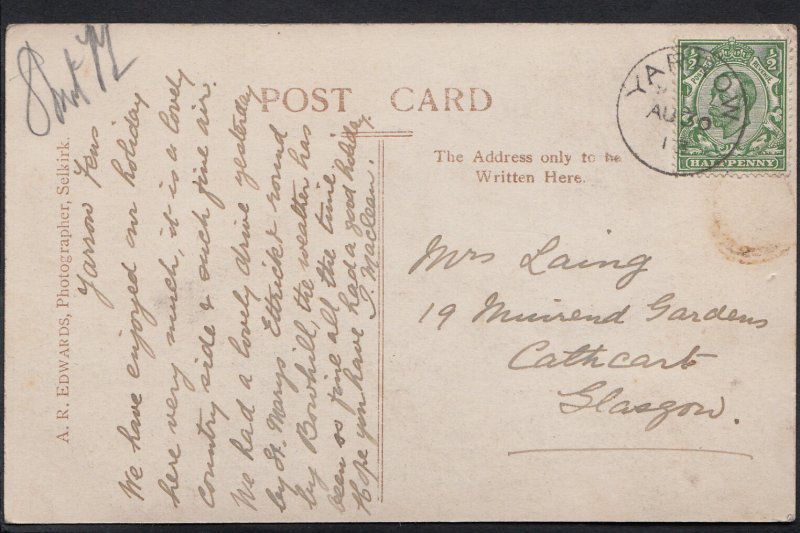 POST CARD
The Address only to be
Written Here.
A. R. EDWARDS, Photographer, Selkirk.
Yarrow Feus
We have enjoyed our holiday
here very much, it is a lovely
country side & such fine air.
We had a lovely drive yesterday
by St. Marys Ettrick round
by Bowhill, the weather has
been so fine all the time
Hope you have had a good holiday.
J. Maclean.
Mrs Laing
19 Muirend Gardens
Cathcart
Glasgow.
YARROW
AU 30
½ ½
POSTAGE REVENUE
HALFPENNY